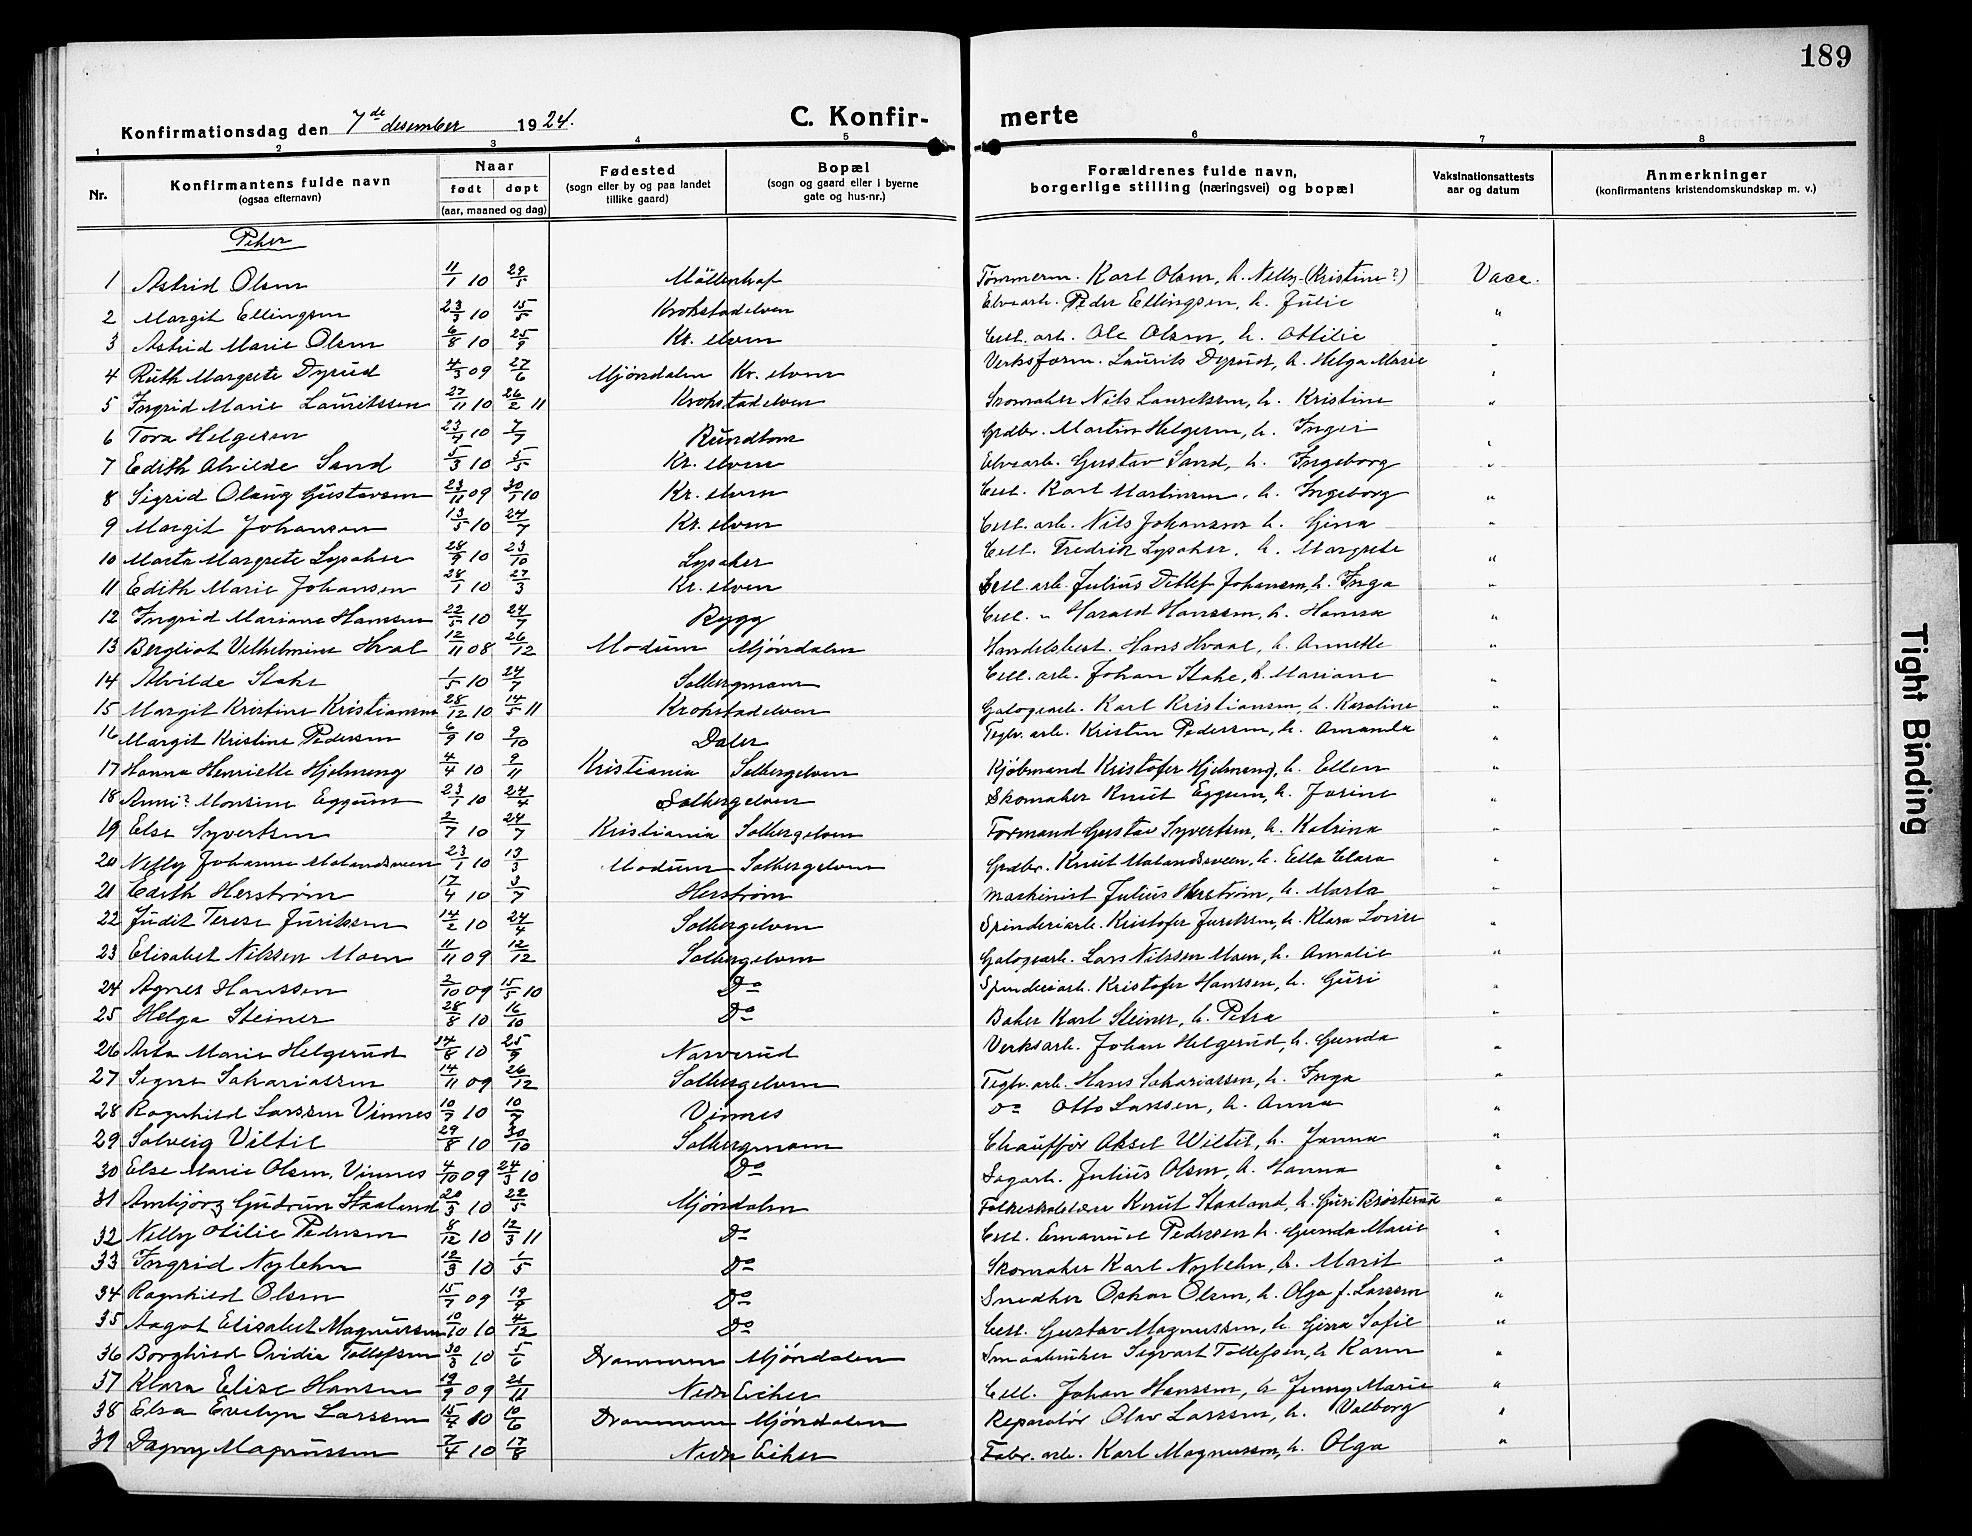 189
Konfirmationsdag den 7de desember 1924.
C. Konfir-
merte
1 2 3 4 5 6 7 8
Nr. Konfirmantens fulde navn (ogsaa efternavn) Naar født døpt (aar, maaned og dag) Fødested (sogn eller by og paa landet tillike gaard) Bopæl (sogn og gaard eller i byerne gate og hus-nr.) Forældrenes fulde navn, borgerlige stilling (næringsvei) og bopæl Vaksinationsattests aar og datum Anmerkninger (konfirmantens kristendomskundskap m. v.)
Piker
1 Astrid Olsen 11/1 10 29/5 Möllenhof Tømmerm. Karl Olsen, h. Nelly (Kristine?) Vacc.
2 Margit Ellingsen 23/3 10 15/5 Krokstadelven Elvearb. Peder Ellingsen, h. Julie "
3 Astrid Marie Olsen 6/8 10 25/9 Kr. elven Cell. arb. Ole Olsen, h. Ottilie "
4 Ruth Margrete Dyrud 4/3 09 27/6 Mjöndalen Kr. elven Verksform. Laurits Dyrud, h. Helga Marie "
5 Ingrid Marie Lauritssen 27/11 10 26/2 11 Krokstadelven Skomaker Nils Lauritssen, h. Kristine "
6 Tora Helgesen 23/4 10 7/7 Rundtom Grdbr. Martin Helgesen, h. Inger "
7 Edith Alvilde Sand 5/3 10 5/5 Kr. elven Elvearb. Gustav Sand, h. Ingeborg "
8 Sigrid Olaug Gustavsen 23/11 09 30/1 10 Kr. elven Cell. Karl Martinsen, h. Ingeborg "
9 Margit Johansen 13/5 10 24/7 Kr. elven Cell. arb. Nils Johansen h. Gina "
10 Marta Margrete Lysaker 28/9 10 23/10 Lysaker Cell. Fredrik Lysaker, h. Margrete "
11 Edith Marie Johansen 28/1 10 27/3 Kr. elven Cell. arb. Julius Ditlef Johansen, h. Inga "
12 Ingrid Mariane Hanssen 22/5 10 24/7 Bygg Cell. " Harald Hanssen, h. Hanna "
13 Bergliot Vilhelmine Hval 12/11 08 26/12 Modum Mjöndalen Handelsbest. Hans Hvaal, h. Annette "
14 Alvilde Stake 1/5 10 24/7 Solbergmoen Cell. arb. Johan Stake, h. Mariane "
15 Margit Kristine Kristiansen 28/12 10 14/5 11 Krokstadelven Galogearb. Karl Kristiansen, h. Karoline "
16 Margit Kristine Pedersen 6/9 10 9/10 Daler Teglv. arb. Kristen Pedersen, h. Amanda "
17 Hanna Henriette Hjelmeng 4/4 10 9/11 Kristiania Solbergelven Kjöbmand Kristofer Hjelmeng, h. Ellen "
18 Anni? Monsine Eggum 23/1 10 24/4 Solbergelven Skomaker Knut Eggum, h. Josine "
19 Else Syvertsen 2/7 10 24/7 Kristiania Solbergelven Formand Gustav Syvertsen, h. Katrina "
20 Nelly Johanne Molandsveen 23/1 10 13/3 Modum Solbergelven Grdbr. Knut Molandsveen, h. Ella Clara "
21 Edith Herstrøm 17/4 10 3/7 Herstrøm Maskinist Julius Herstrøm, h. Marta "
22 Judit Terese Juriksen 14/2 10 24/4 Solbergelven Spinderiarb. Kristofer Juriksen, h. Klara Lovise "
23 Elisabet Nilssen Moen 11/11 09 12/12 Solbergelven Galogearb. Lars Nilssen Moen, h. Amalie "
24 Agnes Hanssen 2/10 09 15/5 10 Do Spinderiarb. Kristofer Hanssen, h. Guri "
25 Helga Steiner 28/8 10 16/10 Do Baker Karl Steiner, h. Petra "
26 Asta Marie Helgerud 14/8 10 25/9 Narverud Verksarb. Johan Helgerud, h. Gunda "
27 Signe Sakariassen 14/11 09 26/12 Solbergelven Teglv. arb. Hans Sakariassen, h. Inga "
28 Ragnhild Larssen Vinnes 10/7 10 10/9 Vinnes Do Otto Larssen, h. Anna "
29 Solveig Viltil 29/8 10 30/10 Solbergmoen Chauffør Aksel Wiltil, h. Janna "
30 Else Marie Olsen, Vinnes 4/10 09 24/3 10 Do Sagarb. Julius Olsen, h. Hanna "
31 Ambjörg Gudrun Staaland 20/3 10 22/5 Mjöndalen Folkeskolelærer Knut Staaland, h. Guri Brösterud "
32 Nelly Otilie Pedersen 8/12 10 12/3 11 Do Cell. Emanuel Pedersen h. Gunda Marie "
33 Ingrid Nylehn 12/3 10 1/5 Do Skomaker Karl Nylehn, h. Marit "
34 Ragnhild Olsen 15/7 09 19/9 Do Snedker Oskar Olsen, h. Olga f. Larssen "
35 Aagot Elisabet Magnussen 10/10 10 4/12 Do Cell. Gustav Magnussen, h. Gina Sofie "
36 Borghild Ovidie Tollefsen 30/3 10 5/6 Drammen Mjöndalen Smaabruker Sigvart Tollefsen, h Karen "
37 Klara Elise Hansen 19/9 09 21/11 Nedr Eiker Cell. Johan Hanssen, h Jenny Marie "
38 Elsa Evelyn Larssen 15/4 10 10/6 Drammen Mjöndalen Reparatör Olav Larssen, h. Valborg "
39 Dagny Magnussen 7/4 10 17/8 Nedr Eiker Fabr. arb. Karl Magnussen, h. Olga "
Tight Binding